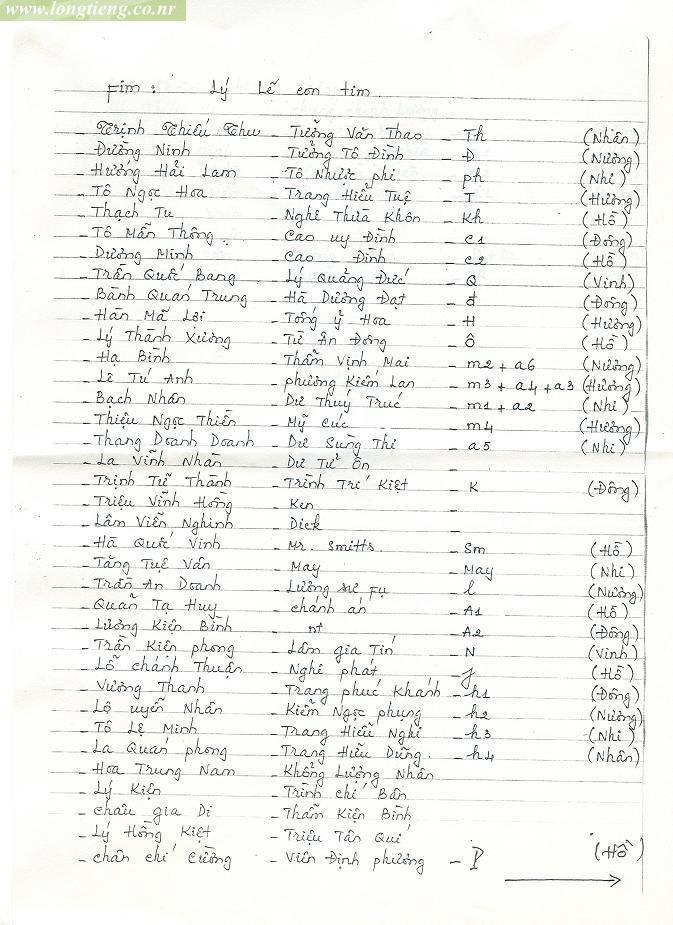 www.longtieng.co.nr
Fim : Lý Lẽ con tim
- Trịnh Thiếu Thu - Tưởng Văn Thao - Th (Nhân)
- Đường Ninh - Tưởng Tô Đình - Đ (Nương)
- Hướng Hải Lam - Tô Nhược phi - ph (Nhi)
- Tô Ngọc Hoa - Trang Hiểu Tuệ - T (Hương)
- Thạch Tu - Nghê Thừa Khôn - Kh (Hồ)
- Tô Mẫn Thông - Cao uy Đình - c1 (Đông)
- Dương Minh - Cao - Đình - c2 (Hồ)
- Trần Quốc Bang - Lý Quảng Đức - Q (Vinh)
- Bành Quán Trung - Hà Dương Đạt - đ (Đông)
- Hàn Mã Lợi - Tống ý Hoa - H (Hương)
- Lý Thành Xương - Từ Ân Đông - Ô (Hồ)
- Hạ Bình - Thẩm Vịnh Mai - m2 + a6 (Nương)
- Lê Tú Anh - phương Kiếm Lan - m3 + a4 + a3 (Hương)
- Bạch Nhân - Dư Thúy Trúc - m1 + a2 (Nhi)
- Thiệu Ngọc Thiên - Mỹ Cúc - m4 (Hương)
- Thang Doanh Doanh - Dư Sùng Thi - a5 (Nhi)
- La Vĩnh Nhàn - Dư Tử Ôn -
- Trịnh Tử Thành - Trình Trí Kiệt - K (Đông)
- Triệu Vĩnh Hồng - Ken -
- Lâm Viễn Nghinh - Dick -
- Hà Quốc Vinh - Mr. Smitts - Sm (Hồ)
- Tăng Tuệ Vân - May - May (Nhi)
- Trần An Doanh - Lương sư Fụ - l (Nương)
- Quan Tạ Huy - chánh án - A1 (Hồ)
- Lương Kiện Bình - nt - A2 (Đông)
- Trần Kiên phong - Lâm gia Tín - N (Vinh)
- Lỗ chánh Thuận - Nghê phát - f (Hồ)
- Vương Thanh - Trang phúc Khánh - h1 (Đông)
- Lộ uyển Nhân - Kiểm Ngọc phụng - h2 (Nương)
- Tô Lệ Minh - Trang Hiểu Nghi - h3 (Nhi)
- La Quán phong - Trang Hữu Dũng - h4 (Nhân)
- Hoa Trung Nam - Khổng Lượng Nhân
- Lý Kiện - Trình chí Bân
- châu gia Di - Thẩm Kiện Bình
- Lý Hồng Kiệt - Triệu Tân Quí
- chân chí Cường - Viên Định phương - P (Hồ)